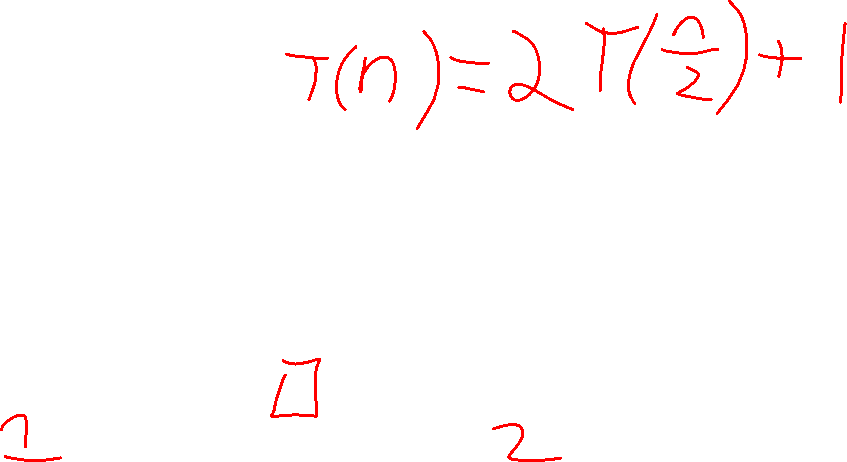 T(n) = 2 T(n/2) + 1
1 2